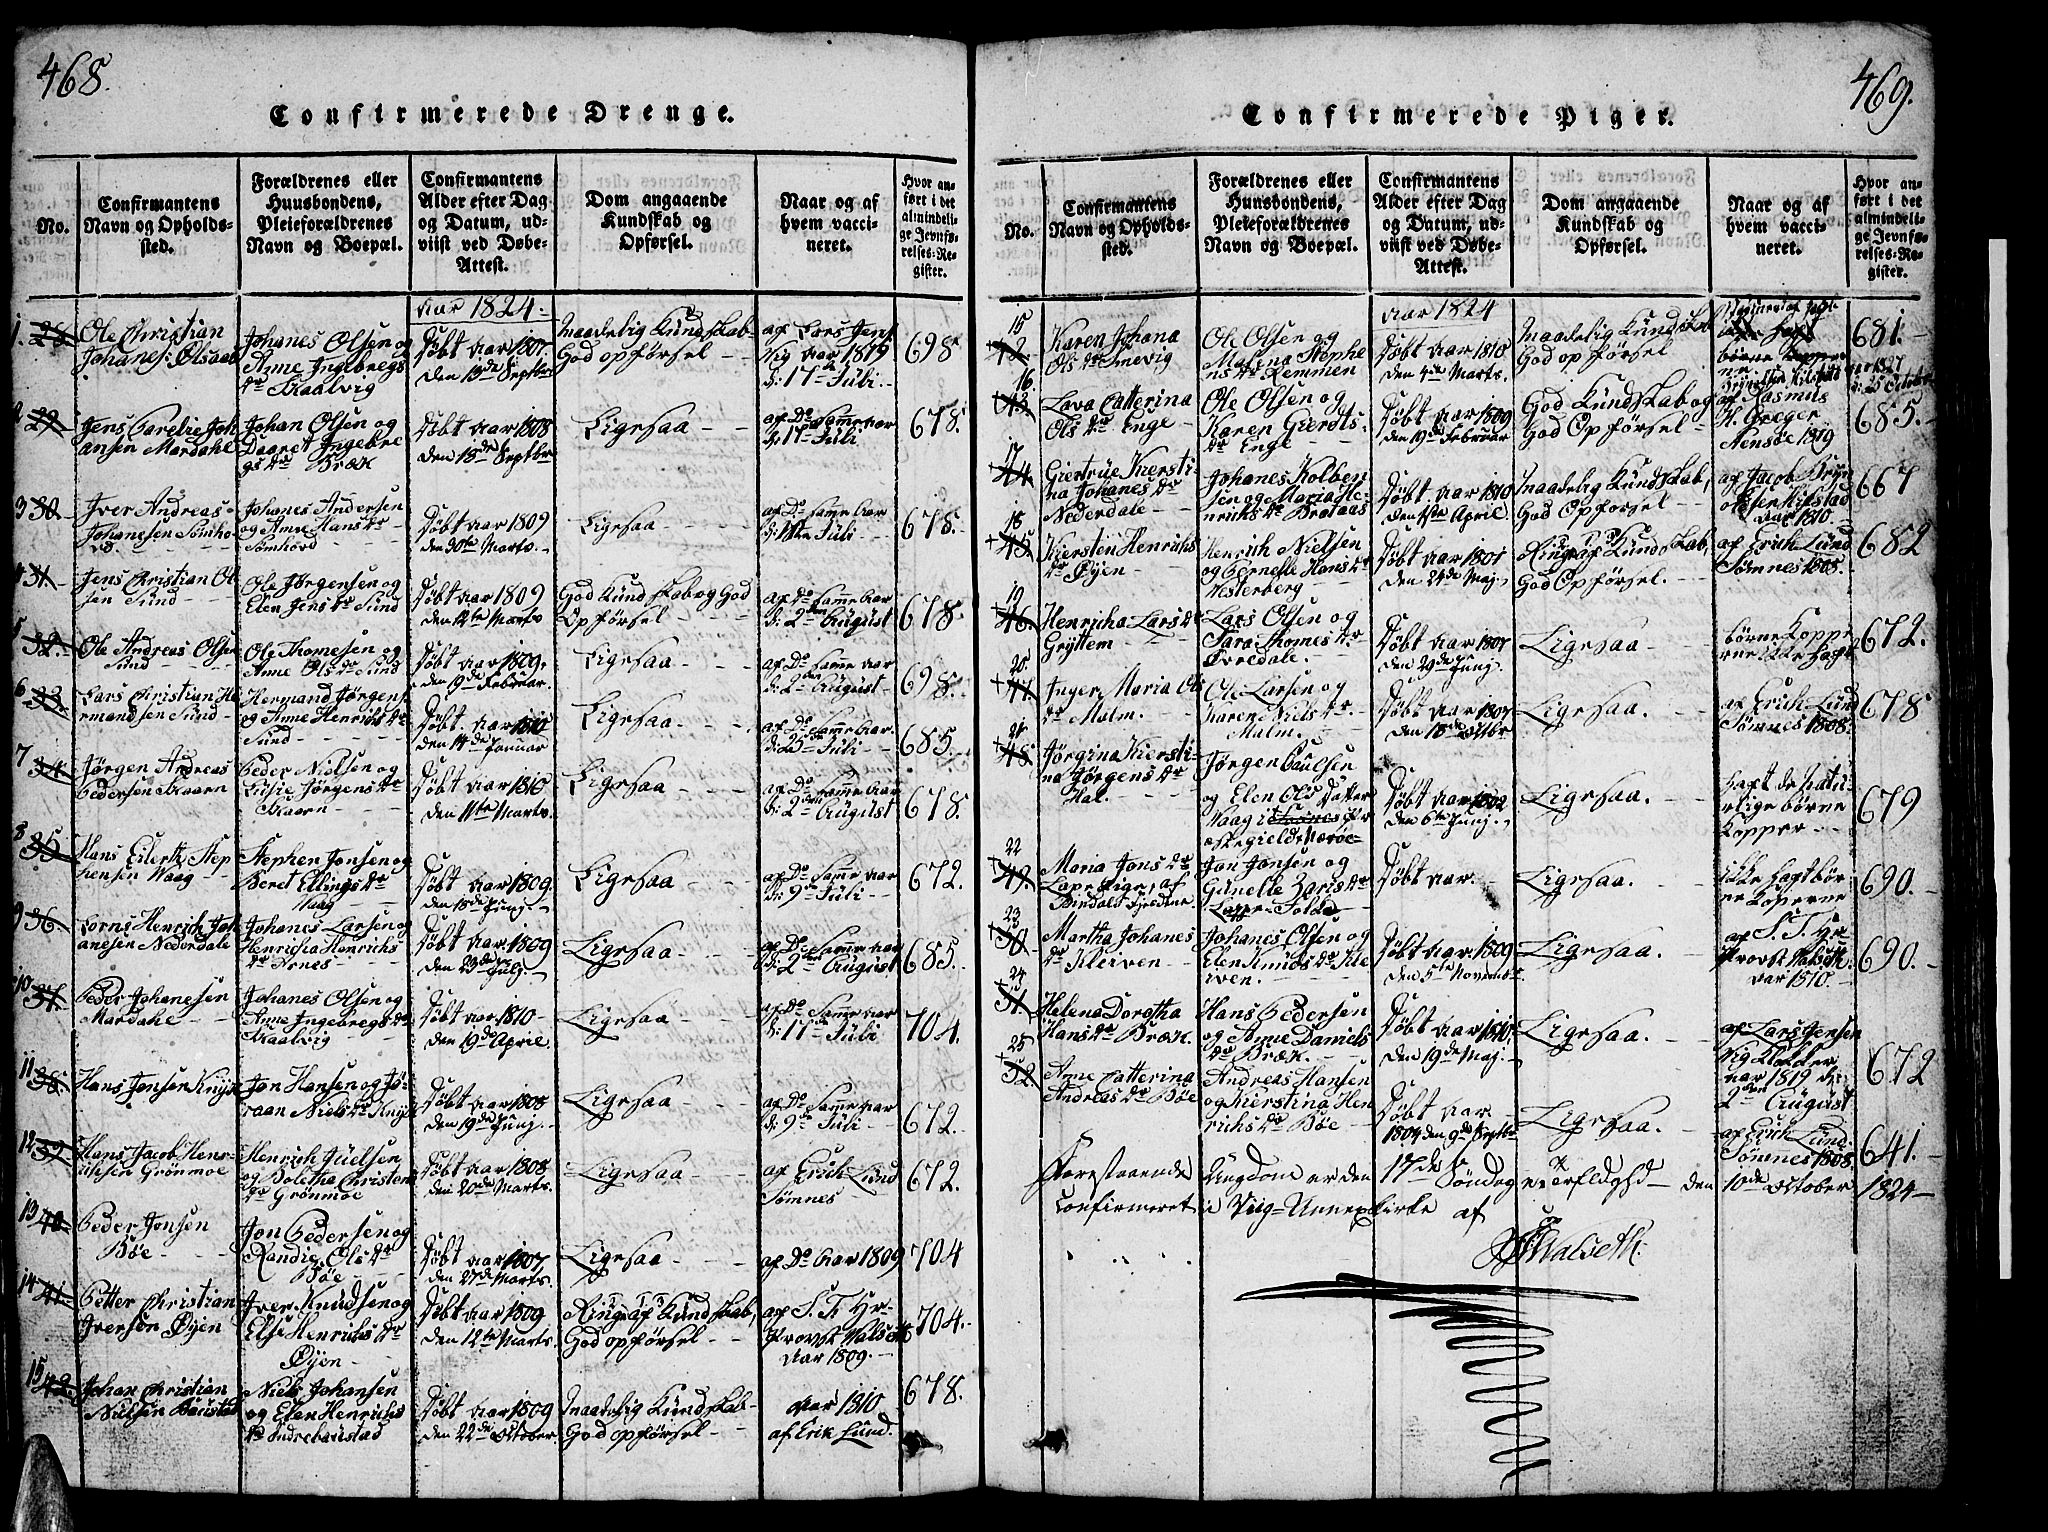 468.
Confirmerede Drenge.
No.
Confirmantens
Navn og Opholds-
sted.
Forældrenes eller
Huusbondens,
Pleieforældrenes
Navn og Boepæl.
Confirmantens
Alder efter Dag
og Datum, ud-
viist ved Døbe-
Attest.
Dom angaaende
Kundskab og
Opførsel.
Naar og af
hvem vacci-
neret.
Hvor an-
ført i det
almindeli-
ge Jevnfø-
relses-Re-
gister.
Aar 1824.
1. 28
Ole Christian
Johanes: Olsen
Johanes Olsen og
Anne Ingebregs
dr Skaalvig
Døbt Aar 1807.
den 13de Septbr
Maadelig Kundskab
God opførsel
af Lars Jens
Vig Aar 1819
d: 17de Juli
698
2 29
Jens Parelie Joh
ansen Mardahl
Johan Olsen og
Daaret Ingebre
gs dr Bræk
Døbt Aar 1808
den 18de Septbr
Ligesaa
af Do Samme Aar
d: 17de Juli
678.
3 30
Iver Andreas
Johanesen Somho
vd.
Johanes Andersen
og Ane Hans dr
Somhovd
Døbt Aar 1809
den 30te Marts.
Ligesaa
af Do Samme Aar
Juli
678.
4 31
Jens Christian Ol
sen Sund
Ole Jørgensen og
Elen Jens dr Sund
Døbt Aar 1809
den 12te Marts
God Kundskab og God
Opførsel
af Do Samme Aar
d: 2den August
678.
5 32.
Ole Andreas Olsen
Sund
Ole Thomesen og
Anne Ols dr Sund
Døbt Aar 1809.
den 19de Februar.
Ligesaa
af Do Samme Aar
d: 2den August
698.
6 33.
Lars Christian He
rmandsen Sund
Hermand Jørgens
og Anne Henrichs dr
Sund
Døbt Aar 1810
den 14de Januar
Ligesaa.
af Do Samme Aar.
Juli
685.
7 34
Jørgen Andreas
Pedersen Skaarn
Peder Nielsen og
Lusie Jørgens dr
Skaarn
Døbt Aar 1810
den 11te Marts.
Ligesaa
af Do Samme Aar
d: 2den August
678.
8 35
Hans Eilertz Step
hensen Waag
Stephen Jonsen og
Beret Ellings dr
Waag
Døbt Aar 1809.
den 18de Junj.
Ligesaa
af Do Samme Aar
d: 9de Juli
672.
9 36
Lorns Henrich Joh
anesen Nederdale
Johanes Larsen og
Henrichia Henrichs
dr Arnes
Døbt Aar 1809
den 23de Julj.
Ligesaa
af Do Samme Aar
d: 2den August
685.
10 37.
Peder Johanesen
Mardahl
Johanes Olsen og
Anne Ingebregs dr
Skaalvig
Døbt Aar 1810
den 19de April.
Ligesaa
af Do Samme Aar
d: 17de Juli
704.
11 38.
Hans Jonsen Knyt
Jon Hansen og Jø-
raan Niels dr Knyt
Døbt Aar 1808
den 19de Junj.
Ligesaa
af Do Samme Aar
d: 9de Juli
672.
12 39
Hans Jacob Hen-
richsen Grønmoe
Henrich Juelsen
og Boletha Christens
dr Grønmoe
Døbt Aar 1808
den 20de Marts.
Ligesaa
af Erich Lund
Sømnes
672.
13 40
Peder Jonsen
Bøe
Jon Pedersen og
Randie Ols dr
Bøe
Døbt Aar 1807,
den 27de Marts.
Ligesaa
af Do Aar 1809
704
14 41
Petter Christian
Iversen Øyen
Iver Knudsen og
Else Henrichs dr
Øyen
Døbt Aar 1809
den 12te Marts
Ringe af Kundskab,
God opførsel
af S. T. Hr
Provst Walseth
Aar 1809.
704.
15 42
Johan Christian
Nielsen Baustad
Niels Johansen
og Elen Henrichs
dr Indrebaustad
Døbt Aar 1809
den 22de October
Maadelig Kundskab
God opførsel
Aar 1810
af Erik Lund.
678.
469.
Confirmerede Piger.
No.
Confirmantens
Navn og Opholds-
sted.
Forældrenes eller
Huusbondens,
Pleieforældrenes
Navn og Boepæl.
Confirmantens
Alder efter Dag
og Datum, ud-
viist ved Døbe-
Attest.
Dom angaaende
Kundskab og
Opførsel.
Naar og af
hvem vacci-
neret.
Hvor an-
ført i det
almindeli-
ge Jevnfø-
relses-Re-
gister.
Aar 1824
15
42
Karen Johana
Ols dr Smevig
Ole Olsen og
Malena Stephe
ns dr Remmen
Døbt Aar 1810
den 4de Marts.
Maadelig Kundskab
God opførsel
børne Kopper
d: 25 October
681.
16.
43.
Lava Catterina
Ols dr Enge
Ole Olsen og
Karen Gierdts
dr Enge
Døbt Aar 1809
den 19de Februar
God Kundskab og
God Opførsel
af Rasmus
H. Greger
Nensøe 1819
685.
17
44.
Giertrue Kiersti-
na Johanes dr
Nederdale
Johanes Kolben
sen og Maria He-
nrichs dr Brataas
Døbt. Aar 1810
den 1ste April.
Maadelig Kundskab,
God Opførsel
af Jacob Bryn
olsen Kilstad
Aar 1810.
667
18
45.
Kiersten Henrichs
dr Øyen
Henrich Nielsen
og Pernelle Hans dr
Westerberg
Døbt Aar 1801
den 24de Maj.
Ringe af Kundskab,
God Opførsel.
af Erich Lund
Sømnes 1808.
682
19
46.
Henricha Lars dr
Gryttem
Lars Olsen og
Sara Thomes dr
Tverdale.
Døbt Aar 1807
den 29de Junj
Ligesaa
børne Koppe
rne ikke hapt
672.
20.
47.
Inger Maria Ols
dr Malm.
Ole Larsen og
Karen Niels dr
Malm.
Døbt Aar 1807
den 18de Octbr
Ligesaa.
af Erich Lund
Sømnes 1808.
678
21
48.
Jørgina Kiersti-
na Jørgens dr
Hal.
Jørgen Paulsen
og Elen Ols Datter
Waag i
Præstegield Nærøe
Døbt Aar 1802
den 6te Junj.
Ligesaa.
hapt de natu-
rlige børne
Kopper
679
22
49.
Maria Jons dr
Lape Pige, af
Bindals fieldene
Jon Jonsen og
Gunelle Zaris dr
Lapper Folk
Døbt Aar
Ligesaa.
ikke hapt bør-
ne Koperne
690.
23
50.
Martha Johanes
dr Kleiven
Johanes Olsen og
Elen Knuds dr Kle
iven.
Døbt Aar 1809
den 5te November
Ligesaa.
af S. T. Hr
Provst Walseth
Aar 1810.
690.
24
51.
Helena Dorotha
Hans dr Bræk
Hans Pedersen
og Anne Daniels
dr Bræk.
Døbt Aar 1810.
den 19de Maj.
Ligesaa.
af Lars Jensen
Vig Klokker
Aar 1819 d:
2den August
672
25
52.
Anne Catterina
Andreas dr Bøe
Andreas Hansen
og Kierstina Hen
richs dr Bøe
Døbt Aar
1809 den 9de Septbr
Ligesaa.
af Erich Lund
Sømnes 1808.
641.
Forestaaende Ungdom er den 17de Søndag den 10de October 1824
Confirmeret i Viig-Annexkirke af
Walseth.